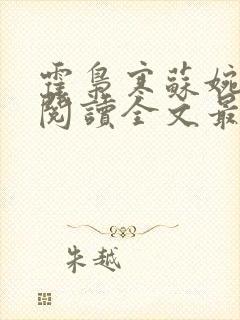 霍梟寒蘇婉
閱讀全文最
朱越